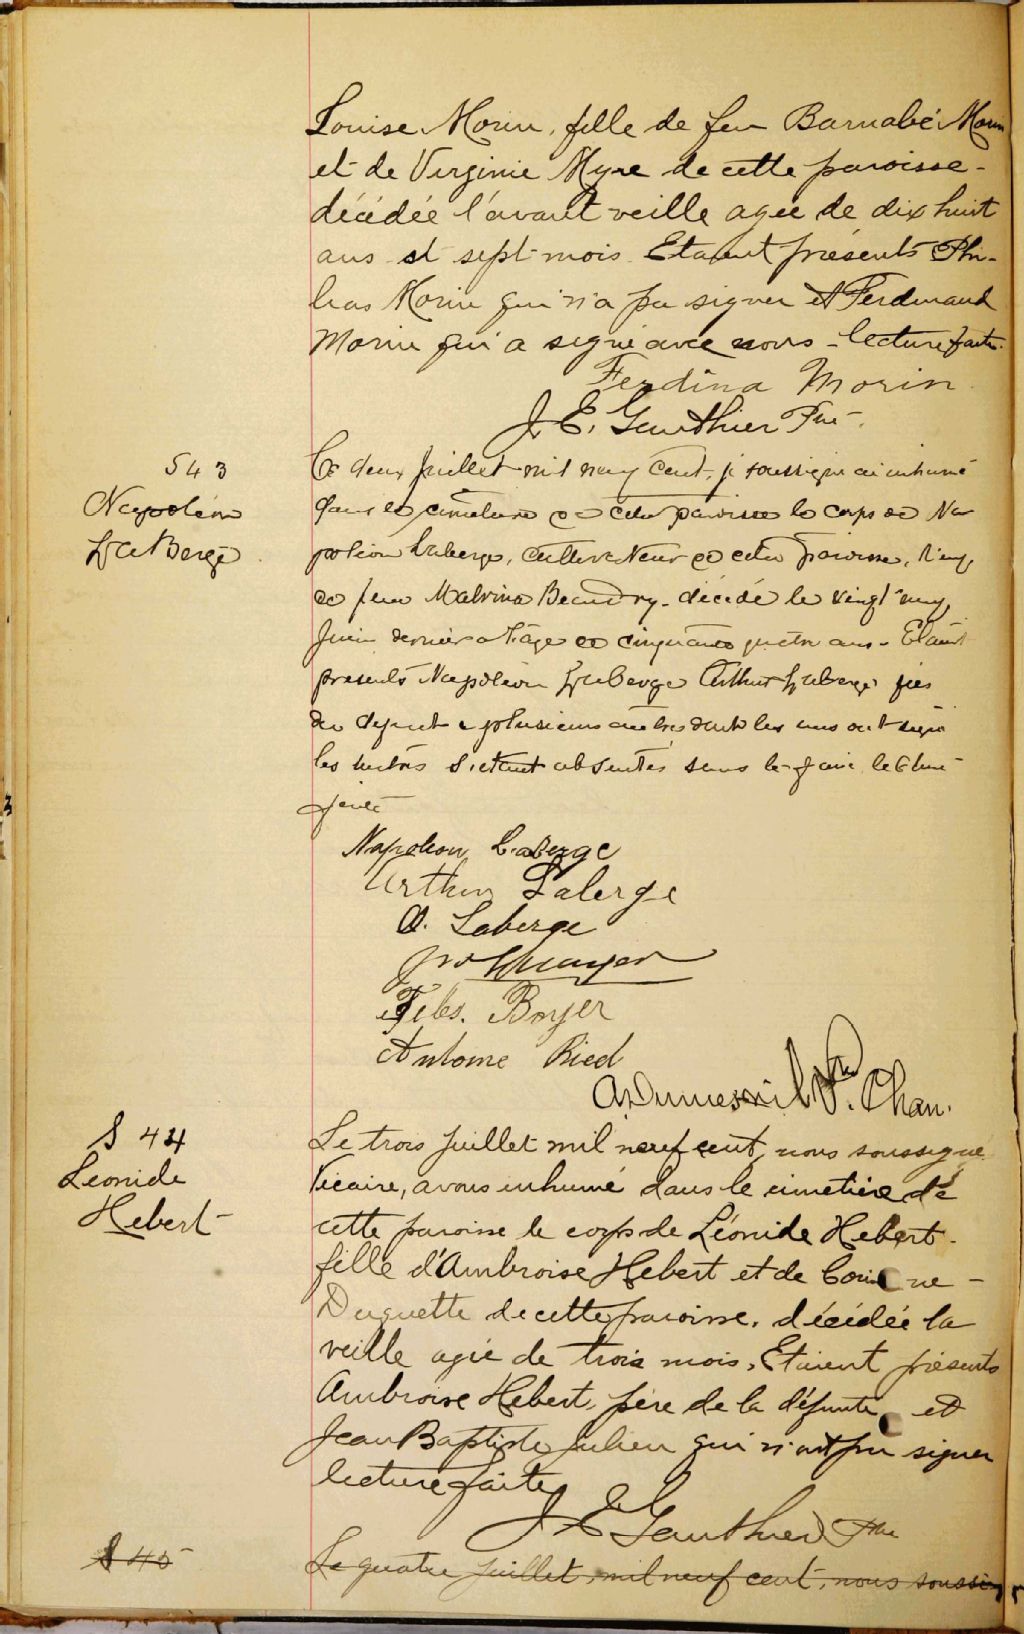 Louise Morin, fille de feu Barnabé Morin
et de Virginie Myre de cette paroisse -
décédée l'avant veille agée de dix huit
ans et sept mois Etaient présents Phi-
lias Morin qui n'a pu signer et Ferdinand
Morin qui a signé avec nous - lecture faite.
Ferdina Morin
J. E. Gauthier Ptre.
S 43
Napoléon
LaBerge
Ce deux Juillet mil neuf cent, je soussigné ai inhumé
dans le cimetière de cette paroisse le corps de Na
poléon Laberge, cultivateur de cette paroisse,
de feue Malvina Beaudry - décédé le vingt neuf
Juin dernier a l'âge de cinquante quatre ans - Etaient
présents Napoléon Laberge Arthur Laberge fils
du défunt & plusieurs autres dont les uns ont signé
les autres s'étant absentés sans le faire lecture
faite
Napoleon Laberge
Arthur Laberge
A. Laberge
Felis. Boyer
Antoine Ried
A. Dumesnil Ptre V. Chan.
S 44
Leonide
Hebert
Le trois Juillet mil neuf cent, nous soussigné
Vicaire, avons inhumé dans le cimetière de
cette paroisse le corps de Léonide Hebert -
fille d'Ambroise Hebert et de Corinne -
Duquette de cette paroisse, décédée la
veille agée de trois mois, Etaient présents
Ambroise Hebert, père de la défunte et
Jean Baptiste Julien qui n'ont pu signer
lecture faite
J. E. Gauthier Ptre
S 45
Le quatre Juillet, mil neuf cent, nous soussig